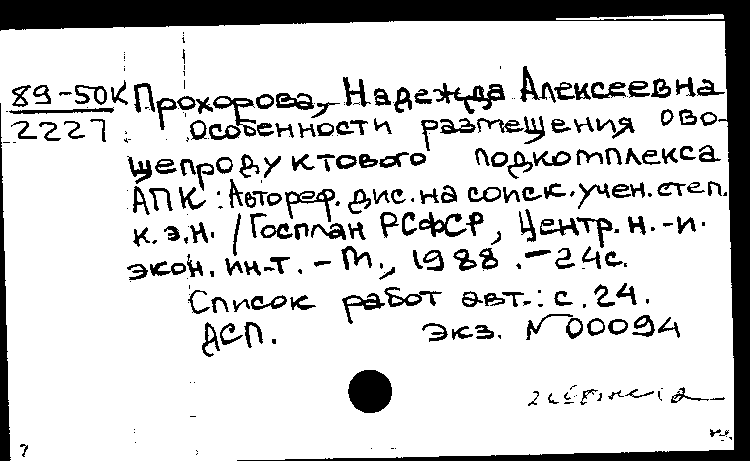 89-50К Прохорова, Надежда Алексеевна
2227 Особенности размещения ово-
щепродуктового подкомплекса
АПК : Автореф. дис. на соиск. учен. степ.
к. э. н. / Госплан РСФСР, Центр. н.-и.
экон. ин-т. - М., 1988. - 24 с.
Список работ авт.: с. 24.
ДСП. экз. N 00094